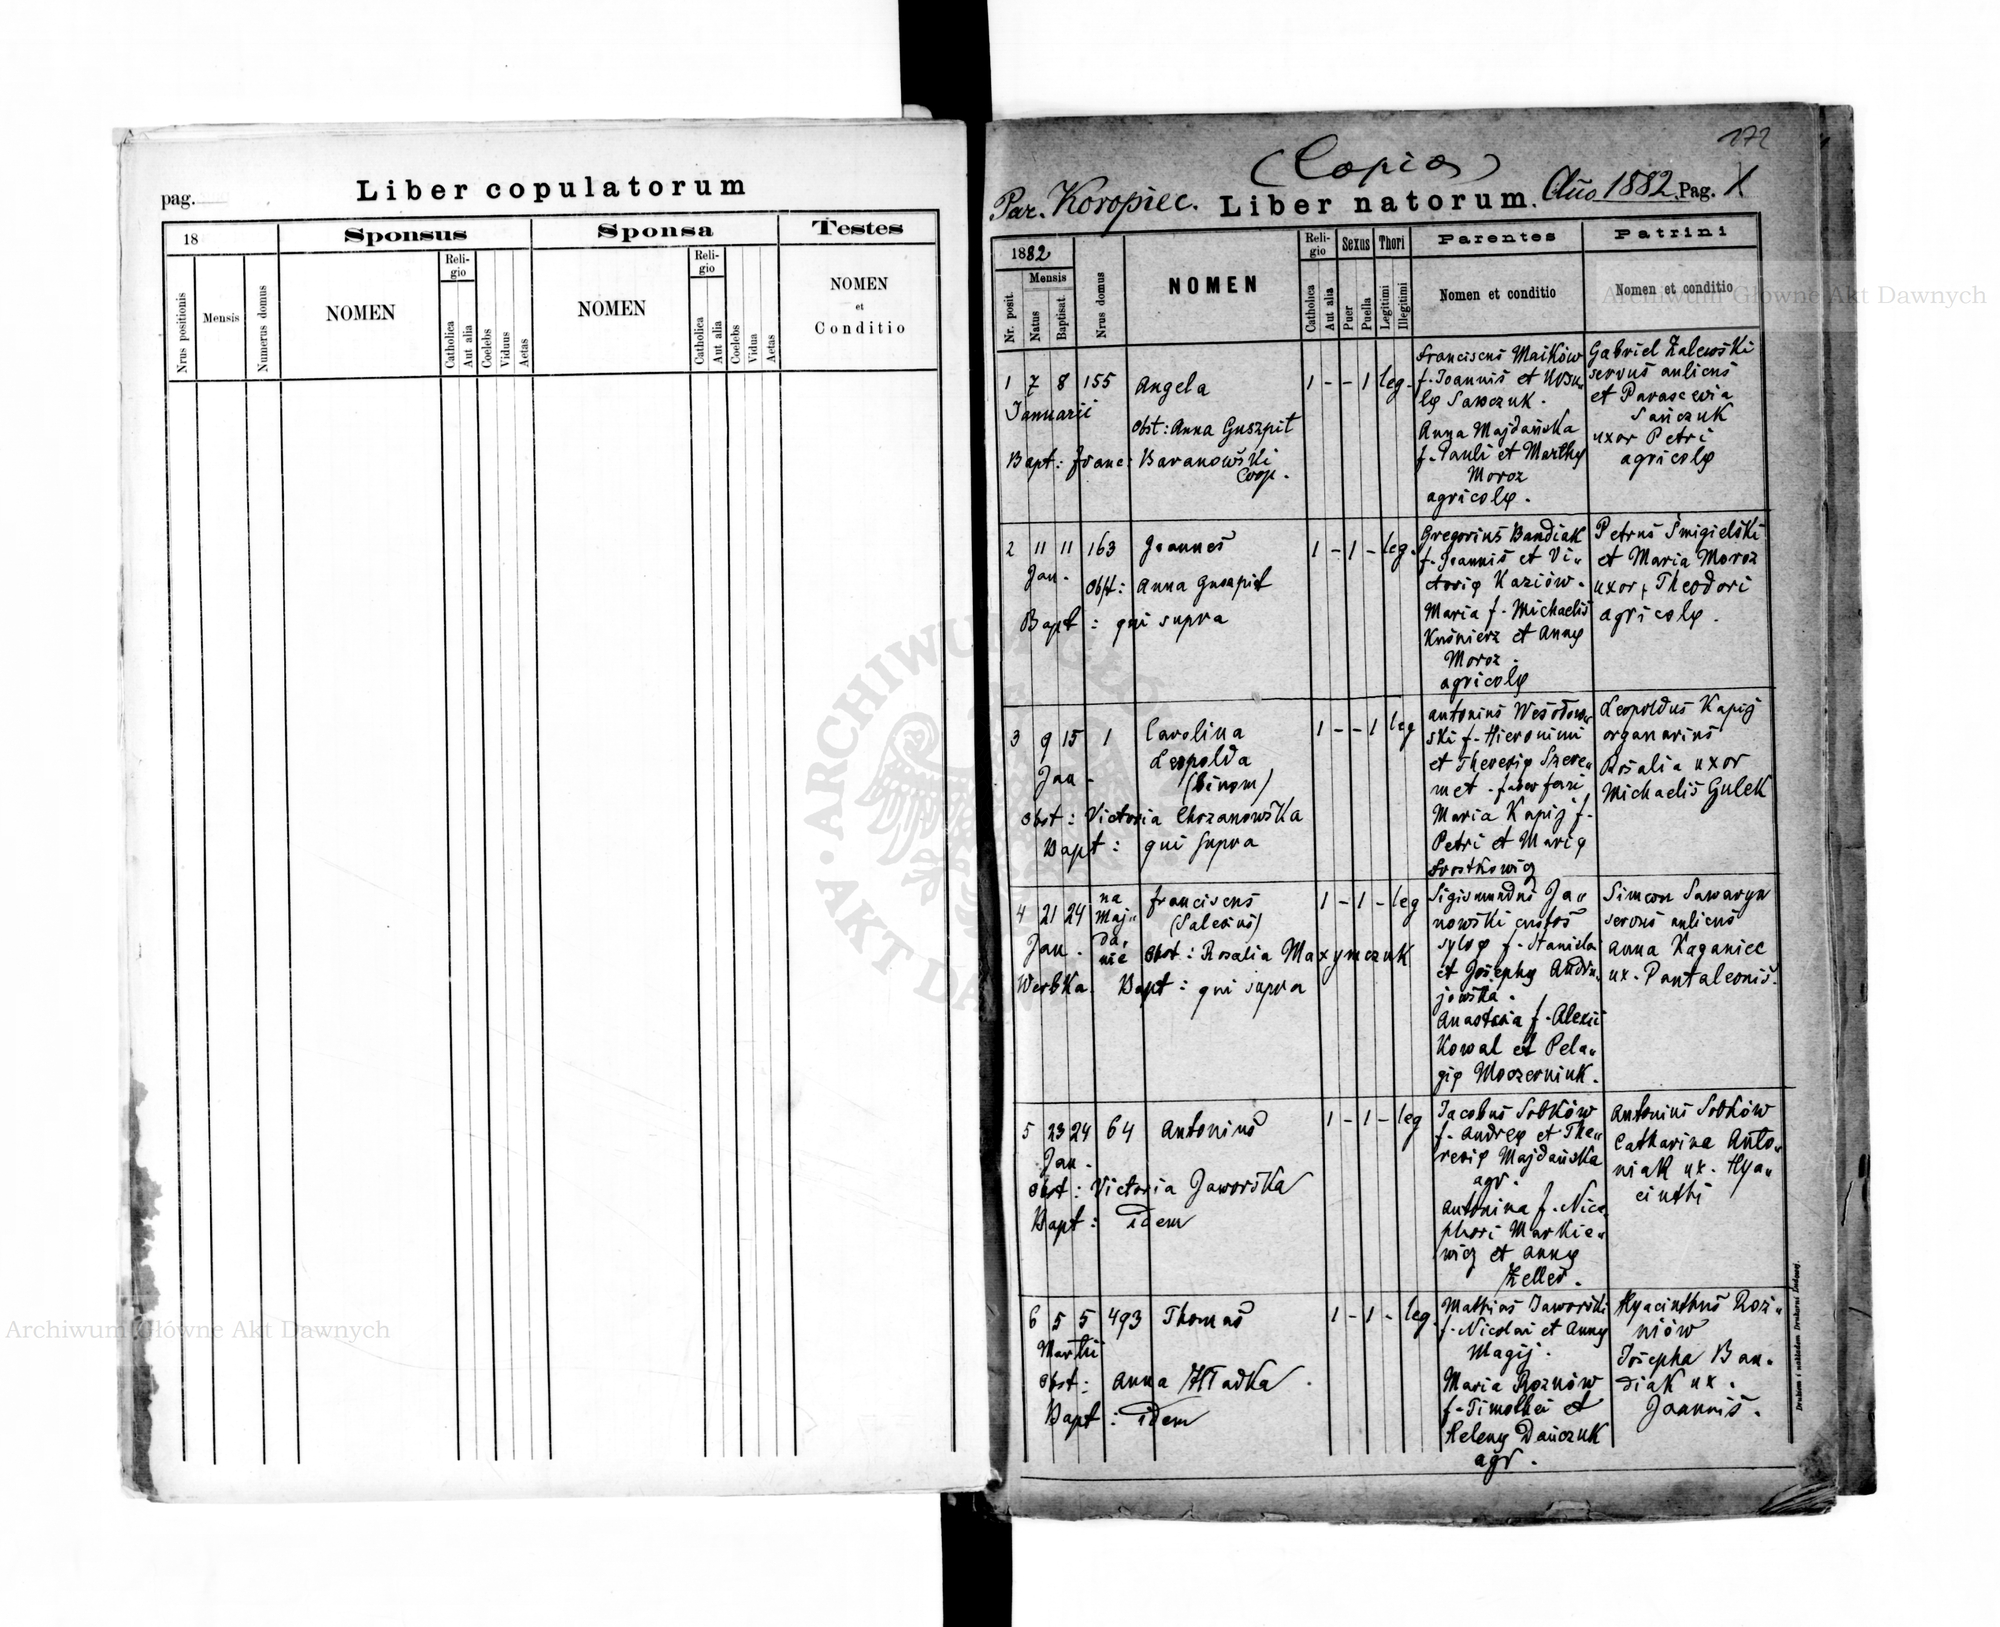 Liber copulatorum
pag.
18
Sponsus
Sponsa
Testes
Nrus positionis
Mensis
Numerus domus
NOMEN
Religio
Catholica
Aut alia
Coelebs
Viduus
Aetas
NOMEN
Religio
Catholica
Aut alia
Coelebs
Vidua
Aetas
NOMEN
et
Conditio
172
(Copia)
Par. Koropiec. Liber natorum. Ano 1882. Pag. 1
1882
Mensis
Nr. posit.
Natus
Baptisat.
Nrus domus
NOMEN
Religio
Catholica
Aut alia
Sexus
Puer
Puella
Thori
Legitimi
Illegitimi
Parentes
Nomen et conditio
Patrini
Nomen et conditio
1 7 8 155 Angela 1 - - 1 leg.
Januarii
Obst: Anna Guszpit
Bapt: Franc: Baranowski
Coop.
Franciscus Maików
f. Joannis et Ursu„
lę Sawczuk.
Anna Majdańska
f. Pauli et Marthę
Moroz
agricolę.
Gabriel Zalewski
servus aulicus
et Parascevia
Sańczuk
uxor Petri
agricolę
2 11 11 163 Joannes 1 - 1 - leg.
Jan.
Obst: Anna Guszpit
Bapt: qui supra
Gregorius Bandiak
f. Joannis et Vi„
ctorię Kaziów.
Maria f. Michaelis
Kuśnierz et Annę
Moroz.
agricolę
Petrus Smigielski
et Maria Moroz
uxor Theodori
agricolę.
3 9 15 1 Carolina 1 - - 1 leg
Leopolda
Jan.
(binom)
Obst: Victoria Chrzanowska
Bapt: qui supra
Antonius Wesołow„
ski f. Hieronimi
et Theresię Szere„
met. faber ferri
Maria Kapij f.
Petri et Marię
Leopoldus Kapij
organarius
Rosalia uxor
Michaelis Gulek
4 21 24 na Maj„ da„ nie Franciscus 1 - 1 - leg
(Salesius)
Jan. Obst: Rosalia Maxymczuk
Werbka. Bapt: qui supra
Sigismundus Ja„
nowski custos
sylvę f. Stanislai
et Josephę Andru„
jowska.
Anastasia f. Alexii
Kowal et Pela„
gię Moczerniuk.
Simeon Sawaryn
servus aulicus
Anna Kaganiec
ux. Pantaleonis.
5 23 24 64 Antonius 1 - 1 - leg
Jan.
Obst: Victoria Jaworska
Bapt: idem
Jacobus Sobków
f. Andreę et The„
resię Majdańska
agr.
Antonina f. Nice„
phori Markie„
wicz et Annę
Zeller.
Antonius Sobków
Catharina Anto„
niak ux. Hya„
cinthi
6 5 5 493 Thomas 1 - 1 - leg.
Martii
Obst: Anna Hładka.
Bapt: idem
Mathias Jaworski
f. Nicolai et Annę
Magij.
Maria Roznów
f. Timothei et
Helenę Dańczuk
agr.
Hyacinthus Roz„
niów
Josepha Ban„
diak ux.
Joannis.
Drukiem i nakładem Drukarni Ludowej.
Archiwum Główne Akt Dawnych
Archiwum Główne Akt Dawnych
ARCHIWUM GŁÓWNE AKT DAWNYCH